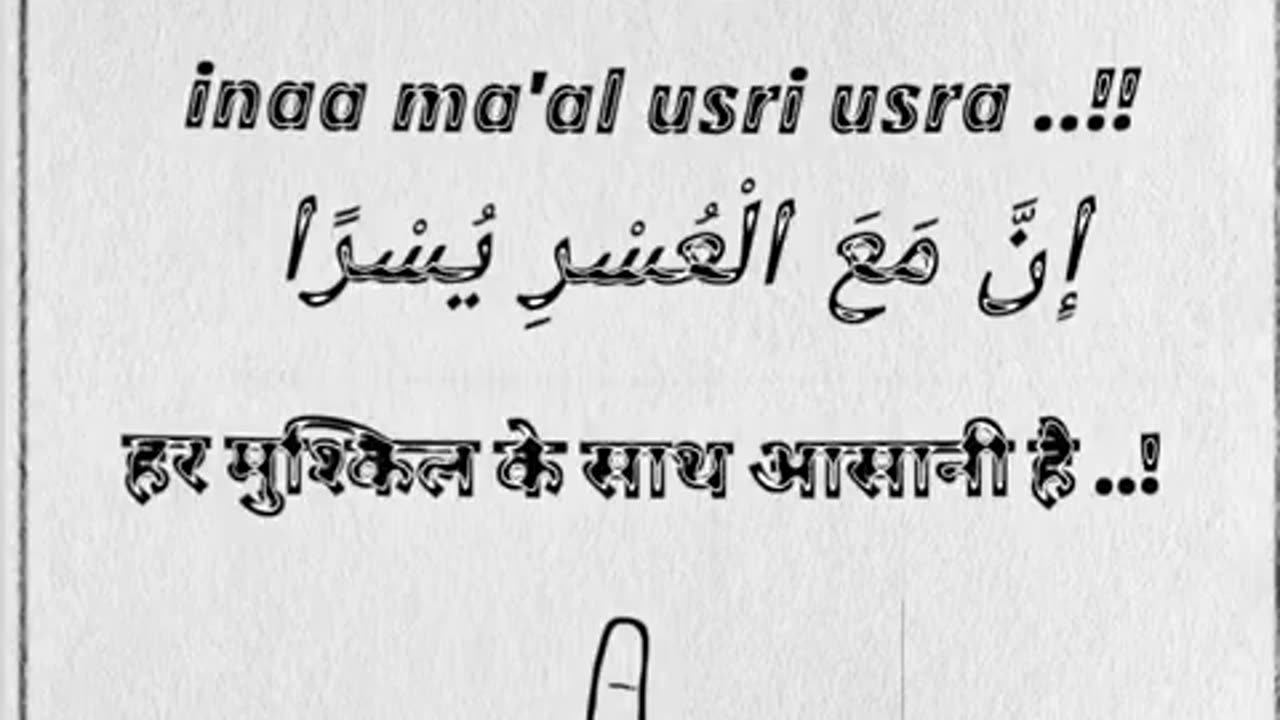 inaa ma'al usri usra ..!!
إِنَّ مَعَ الْعُسْرِ يُسْرًا
हर मुश्किल के साथ आसानी है ...!